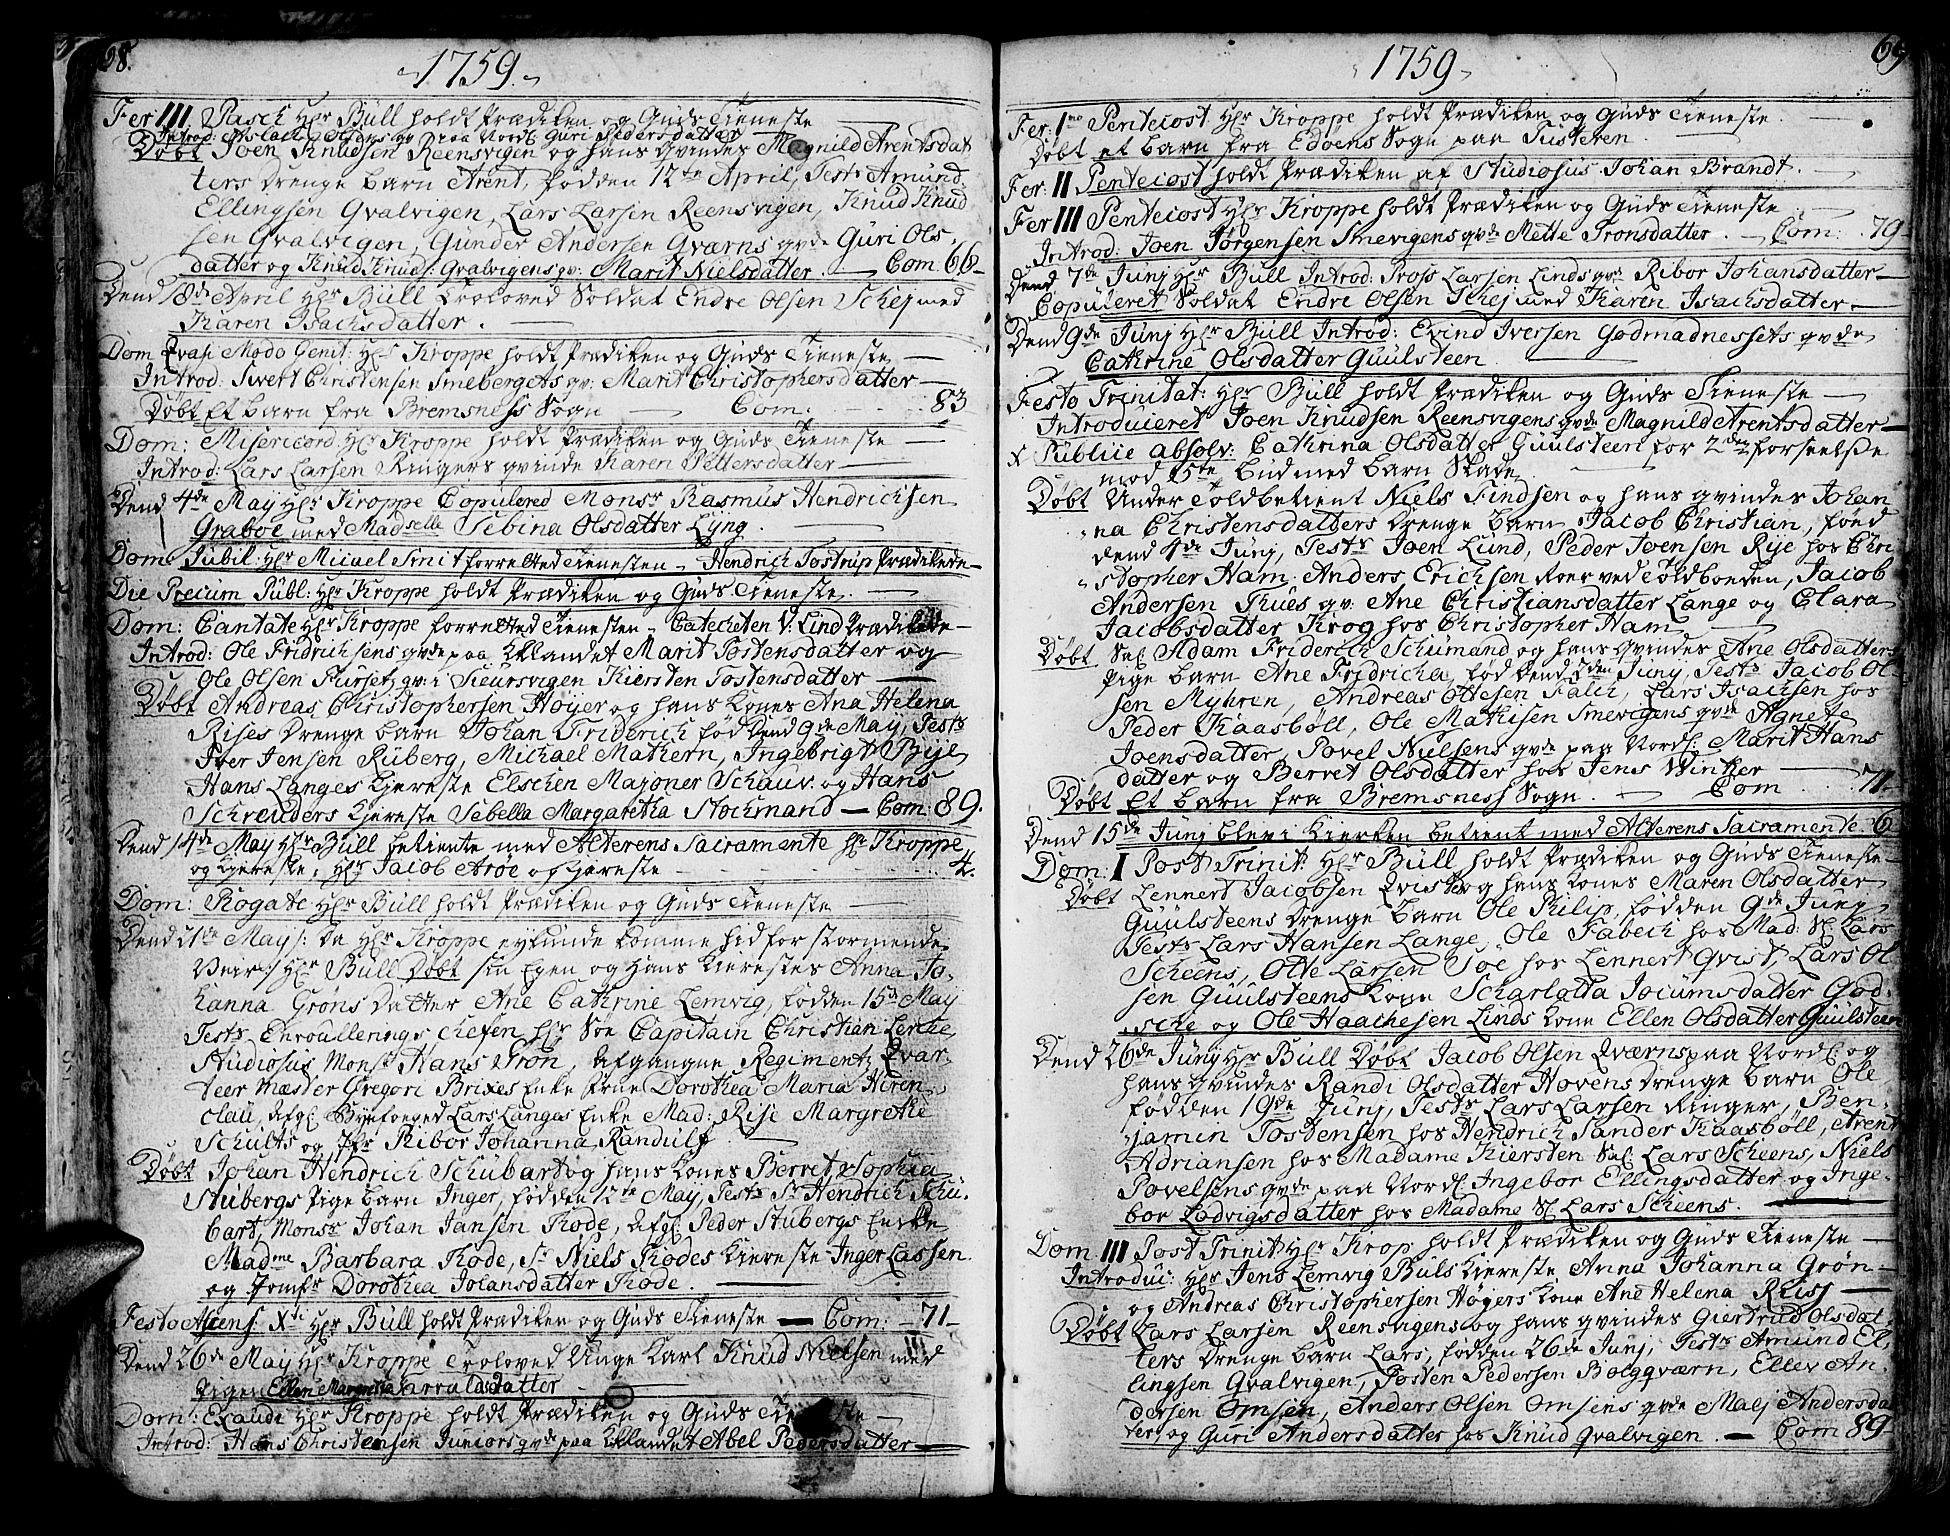 68.
1759.
Fer III Pasch Hr Büll holdt Prædiken og Guds Tieneste
Introd: Aslach Golmes qv paa Nordl. Guri Pedersdatter
Døbt Joen Knudsen Reensvigen og hans qvindes Magnild Arentsdat
ters drenge barn Arent, fødden 12te April, Test: Amund
Ellingsen Qvalvigen, Lars Larsen Reensvigen, Knud Knud
sen Qvalvigen, Gunder Andersen Qværns qvde Guri Ols
datter og Knud Knuds: Qvalvigens qv: Marit Nielsdatter. Com 66
Dend 18de April Hr Büll Troloved Soldat Endre Olsen Schej med
Karen Isachsdatter.
Dom Qvasi Modo Genit: Hr Kroppe holdt Prædiken og Guds Tieneste
Introd: Sivert Christensen Smebergets qv: Marit Christophersdatter
Døbt Et barn fra Bremsness Sogn Com. 83
Dom: Misericord: Hr Kroppe holdt Prædiken og Guds Tieneste
Introd: Lars Larsen Ringers qvinde Karen Pettersdatter
Dend 4de May Hr Kroppe Copulered Monsr Rasmus Hendrichsen
Graboe med Madselle Sebina Olsdatter Lyng.
Dom Jubil: Hr Micael Smit forretted Tienesten Hendrich Tostrup Prædikede
Die Precum Publ: Hr Kroppe holdt Prædiken og Guds Tieneste.
Dom: Cantate Hr Kroppe forretted Tienesten Catecheten V: Lind Prædikede
Introd: Ole Fridrichsens qvde paa Uklandet Marit Tostensdatter og
Ole Olsen Furset, qv: i Sieursvigen Kiersten Tostensdatter
Døbt Andreas Christophersen Høyer og hans Kones Ana Helena
Rises drenge barn Johan Friderich fød dend 9de Maij, Tests
Iver Jensen Ruberg, Michael Mathern, Ingebrigt Bije
Hans Langes Kiereste Elschen Majoner Schauv. og Hans
Schreuders Kiereste Sebella Margaretha Stochmand Com: 89.
Dend 14de May Hr Büll betiente med Alterens Sacramente Hr Kroppe
og Kiereste, Hr Jacob Arøe og Kiereste 4.
Dom: Rogate Hr Büll holdt Prædiken og Guds Tieneste
Dend 21de May /: da Hr Kroppe ey kunde komme hid for stormende
Veir :/ Hr Büll Døbt sin Egen og hans Kierestes Anna Jo-
hanna Grøns datter Ane Cathrine Lemvig, fødden 15de May
Tests Enroullerings Chefen Hr Søe Capitain Christian Lerche
Studiosus Monsr Hans Grøn, Afgangne Regiment: Qvar-
teer Mæster Gregori Brixes Enke Frue Dorothea Maria Hiren
clau, Afg: Byefoeged Lars Langas Enke Mad: Rise Margrethe
Schults og Jfr Ribor Johanna Randulf
Døbt Johan Hendrich Schübart og hans Kones Berret Sophia
Stübergs Pige barn Inger, fødden 11de May, Tests Sr Hendrich Schü-
bart, Monsr Johan Jansen Rode, Afg: Peder Stubergs Encke
Madme Barbara Rode, Sr Niels Rodes Kiereste Inger Lassen
og Jomfr Dorothea Johansdatter Rode.
Festo Ascens: Xti Hr Büll holdt Prædiken og Guds Tieneste Com: 71
Dend 26de May Hr Kroppe Troloved Unge Karl Knud Nielsen med
Pigen Ellen Margretha datter
Dom: Exaudi Hr Kroppe holdt Prædiken og Guds Tieneste
Introd: Hans Christensen Juniors qvde paa Uklandet Abel Pedersdatter
69
1759
Fer: 1mo Pentecost Hr Kroppe holdt Prædiken og Guds Tieneste.
Døbt et barn fra Edøens Sogn paa Tusteren
Fer: II Pentecost holdt Prædiken af Studiosus Johan Brandt.
Fer III Pentecost Hr Kroppe holdt Prædiken og Guds Tieneste
Introd: Joen Jørgensen Smevigens qvde Mette Tronsdatter. Com: 79
Dend 7de Junj Hr Büll Introd: Tross Larsen Linds qv: Ribor Johansdatter
Copuleret Soldat Endre Olsen Schej med Karen Isachsdatter
Dend 9de Junj Hr Büll Introd: Evind Iversen Godmadnessets qvde
Cathrine Olsdatter Guulsteen
Festo Trinitat: Hr Büll holdt Prædiken og Guds Tieneste
Introduceret Joen Knudsen Reensvigens qvde Magnild Arentsdatter
X Publiie absolv: Cathrina Olsdatter Guulsteen for 2den forseelse
mod 6te bud med barn Skade
Døbt Under Toldbetient Niels Findsen og hans qvindes Johan
na Christensdatters drenge barn Jacob Christian, fød
dend 4de Junj, Tests Joen Lund, Peder Joensen Rye hos Chri
stopher Ham, Anders Erichsen Roer ved Toldboeden, Jacob
Andersen Thues qv: Ane Christiansdatter Lange og Clara
Jacobsdatter Krog hos Christopher Ham
Døbt Sal: Adam Friderich Schümand og hans qvindes Ane Olsdatters
Pige barn Ane Fridricha, fød dend 7den Junj, Tests Jacob Ol
sen Myhren, Andreas Ottesen Falch, Lars Isachsen hos
Peder Kaasbøll, Ole Mathisen Smevigens qvde Agnete
Joensdatter, Povel Nielsens qvde paa Nordl: Marit Hans
datter og Berret Olsdatter hos Jens Winter
Døbt Et barn fra Bremsness Sogn. Com 71.
Dend 15de Junj blev i Kierken betient med Alterens Sacramente 6
Dom: I Post Trinit: Hr Büll holdt Prædiken og Guds Tieneste
Døbt Lennert Jacobsen Qvist og hans Kones Maren Olsdatter
Guulsteens drenge barn Ole Philip, fødden 9de Junj
Tests Lars Hansen Lange, Ole Fabech hos Mad: Sl Lars
Scheens, Otte Larsen Soe hos Lennert Qvist, Lars Ol
sen Guulsteens Kone Scharlatta Jocumsdatter God-
sche og Ole Haachesen Linds Kone Ellen Olsdatter Guulsteen
Dend 26de Junj Hr Büll Døbt Jacob Olsen Qværns paa Nordl: og
hans qvindes Randi Olsdatter Hovens drenge barn Ole
fødden 19de Junj, Tests Lars Larsen Ringer, Ben-
jamin Tostensen hos Hendrich Sander Kaasbøll, Arent
Adriansen hos Madame Kiersten Sal. Lars Scheens, Niels
Povelsens qvde paa Nordl: Ingebor Ellingsdatter og Inge-
bor Lodvigsdatter hos Madame Sl Lars Scheens.
Dom III Post Trinit Hr Krop holdt Prædiken og Guds Tieneste
Introduc: Hr Jens Lemvig Büls Kiereste Anna Johanna Grøn
og Andreas Christophersen Høyers Kone Ane Helena Reiss
Døbt Lars Larsen Reensvigens og hans qvindes Giertrud Olsdat
ters drenge barn Lars, fødden 26de Junj, Tests Amund El
lingsen Qvalvigen, Posten Pedersen Bolgqværn, Ellev An-
dersen Omsen, Anders Olsen Omsens qvde Malj Andersdat
ter og Guri Andersdatter hos Knud Qvalvigen. Com 89